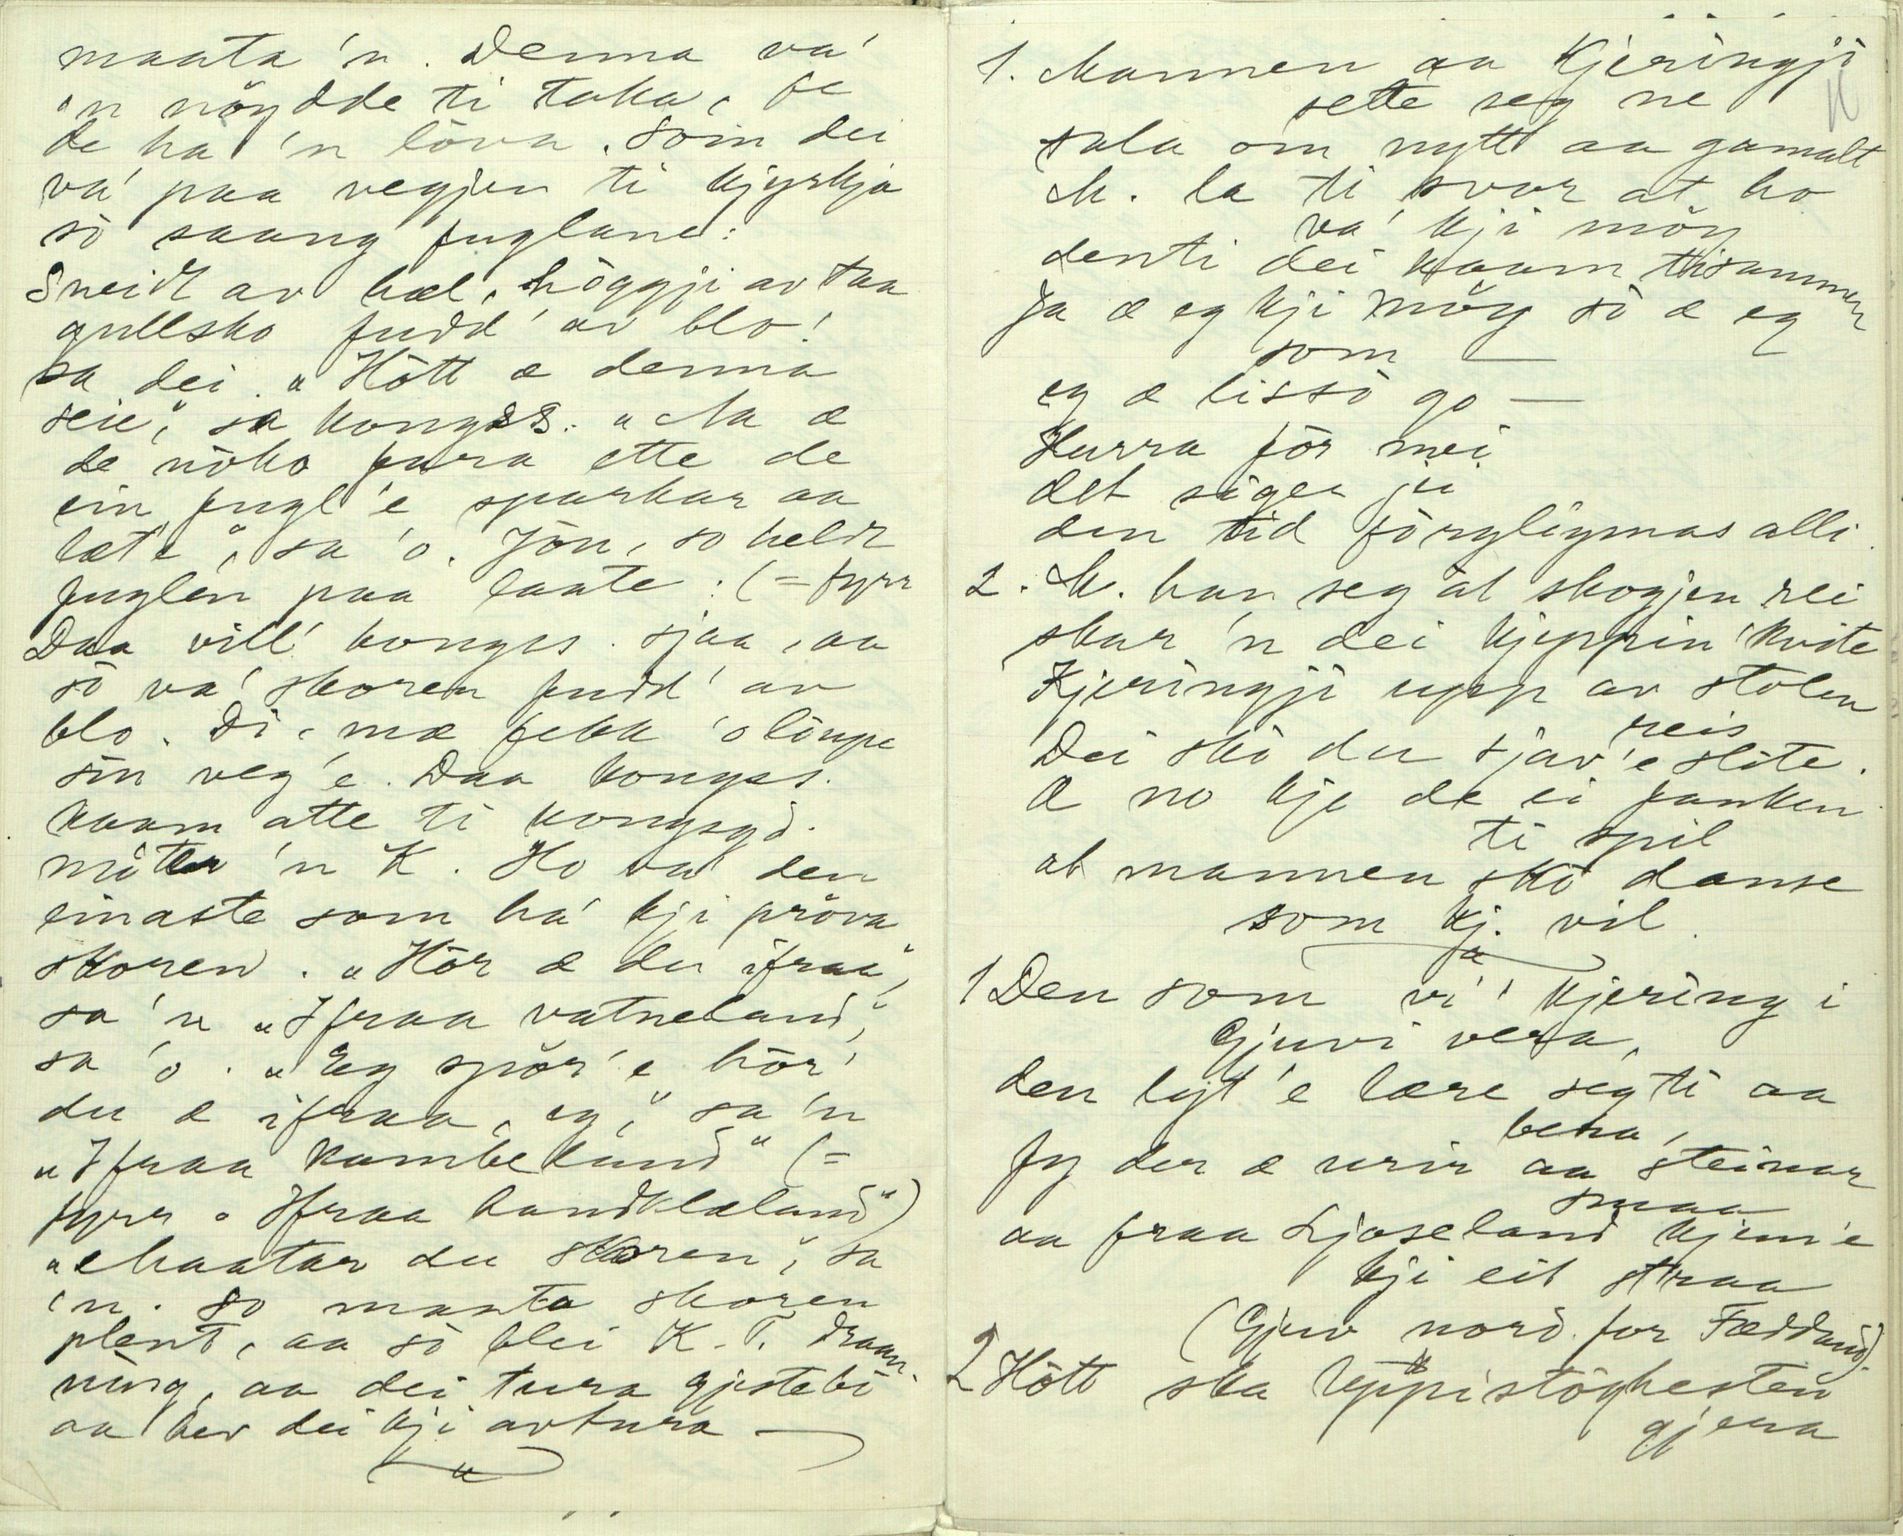 maata 'n. Denna va'
'n nöydde ti taka, fe
de ha 'n lova. Som dei
va' paa vegjen ti kjyrkja
so saang fuglane:
Sneidt av hæl, höggji av taa
gullsko fudd' av blo!
sa dei. „Hött æ denna
seie," sa kongss. „Na æ
de noko fara ette de
ein fugl'e sparkar aa
læt'e", sa 'o. Jön, so heldt
fuglen paa laate: (= fyrr
Daa vill' kongss. sjaa, aa
so va' skoren fudd' av
blo. Di, mæ fekk 'o löupe
sin veg'e. Daa kongss.
kaam atte ti kongsgd.
mötte 'n K. Ho va' den
einaste som ha' kji pröva
skoren. „Hör æ du ifraa",
sa 'n „Ifraa vatneland,"
sa 'o. „Eg spör'e hör'
du æ ifraa, eg," sa 'n
„Ifraa kambeland" (=
fyrr „Ifraa handklæland")
„Maatar du skoren", sa
'n. So maata skoren
plent, aa so blei K. T. draan-
ning, aa dei tura gjestebo
aa hev dei kji avtura —
1. Mannen aa Kjeringji
sette seg ne
tala om nytt aa gamalt
M. la ti svar at ho
va' kji möy
denti dei kaam tisammen
Ja æ eg kji möy so æ eg
som —
eg æ lissö go —
Hurra för mei
det siger ji
den tid förgliymas alli.
2. M. han seg at skogjen rei
skar 'n dei kjeppin' kvite
Kjeringji upp av stolen
reis
Dei sko du sjav'e slite.
Æ no kje de ei fanken
ti spil
at mannen sko danse
som kj. vil.
1 Den som vi' kjering i
Gjuvi vera,
den lyt'e lære seg ti aa
bera,
Fy der æ urir aa steinar
smaa
aa fraa Ljoseland kjem'e
kji eit straa
(Gjuv nord. for Fæddand).
2 Hött ska Uppistöghesten
gjera